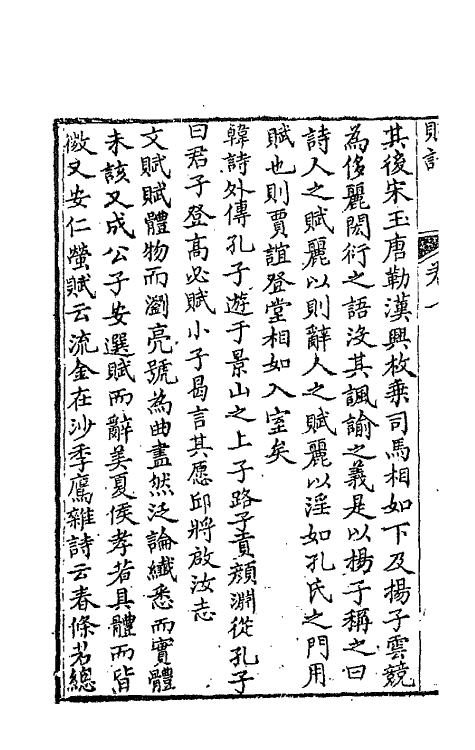 賦話
卷一
其後宋玉唐勒漢興枚乗司馬相如下及揚子雲競
為侈麗閎衍之語沒其諷諭之義是以楊子稱之曰
詩人之賦麗以則辭人之賦麗以淫如孔氏之門用
賦也則賈誼登堂相如入室矣
韓詩外傳孔子遊于景山之上子路子貢顏淵從孔子
曰君子登高必賦小子曷言其愿邱將啟汝志
文賦賦體物而瀏亮號為曲盡然泛論纖悉而實體
未該又成公子安選賦而辭美夏侯孝若具體而皆
微又安仁螢賦云流金在沙季鷹雜詩云春條若總